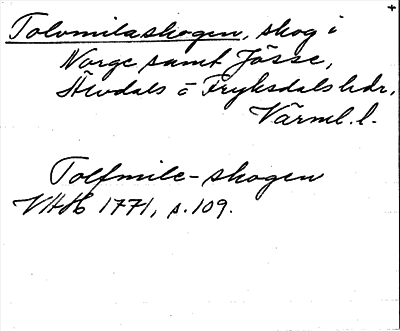 Tolvmilaskogen, skog i
Norge samt Jösse,
Älvdals o Fryksdals hdr,
Värml. l.
Tolfmile-skogen
VAH 1771, s. 109.